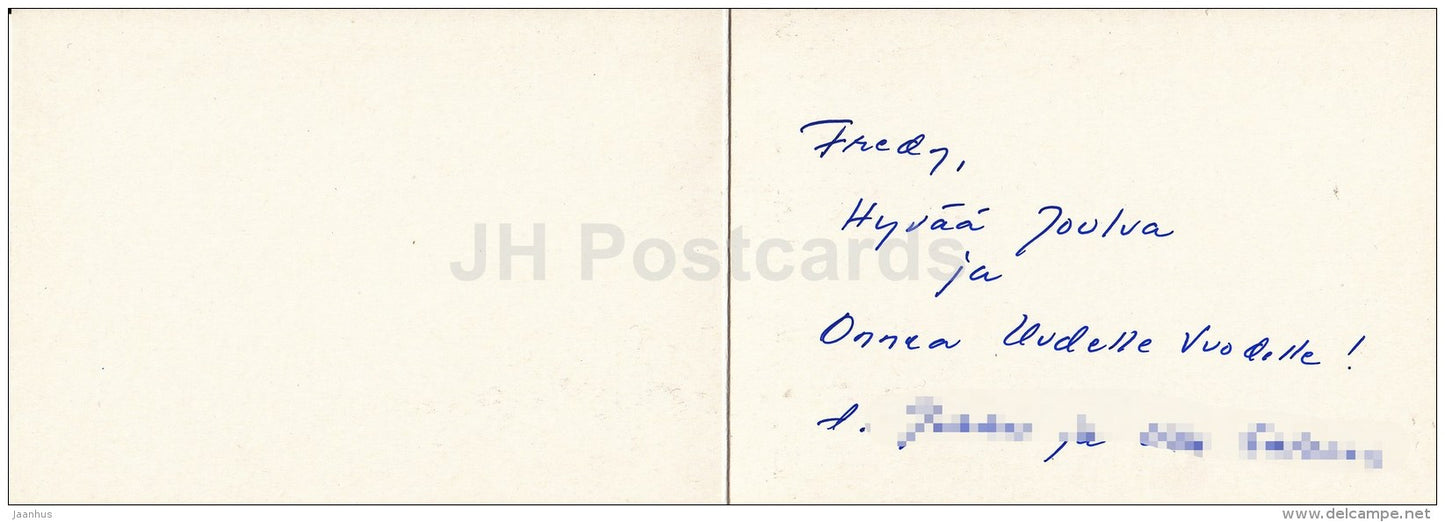 Fredy,
Hyvää Joulua
JH Postcards
ja
Onnea Uudelle Vuodelle!
t.
ja
Jaanhus
www.delcampe.net